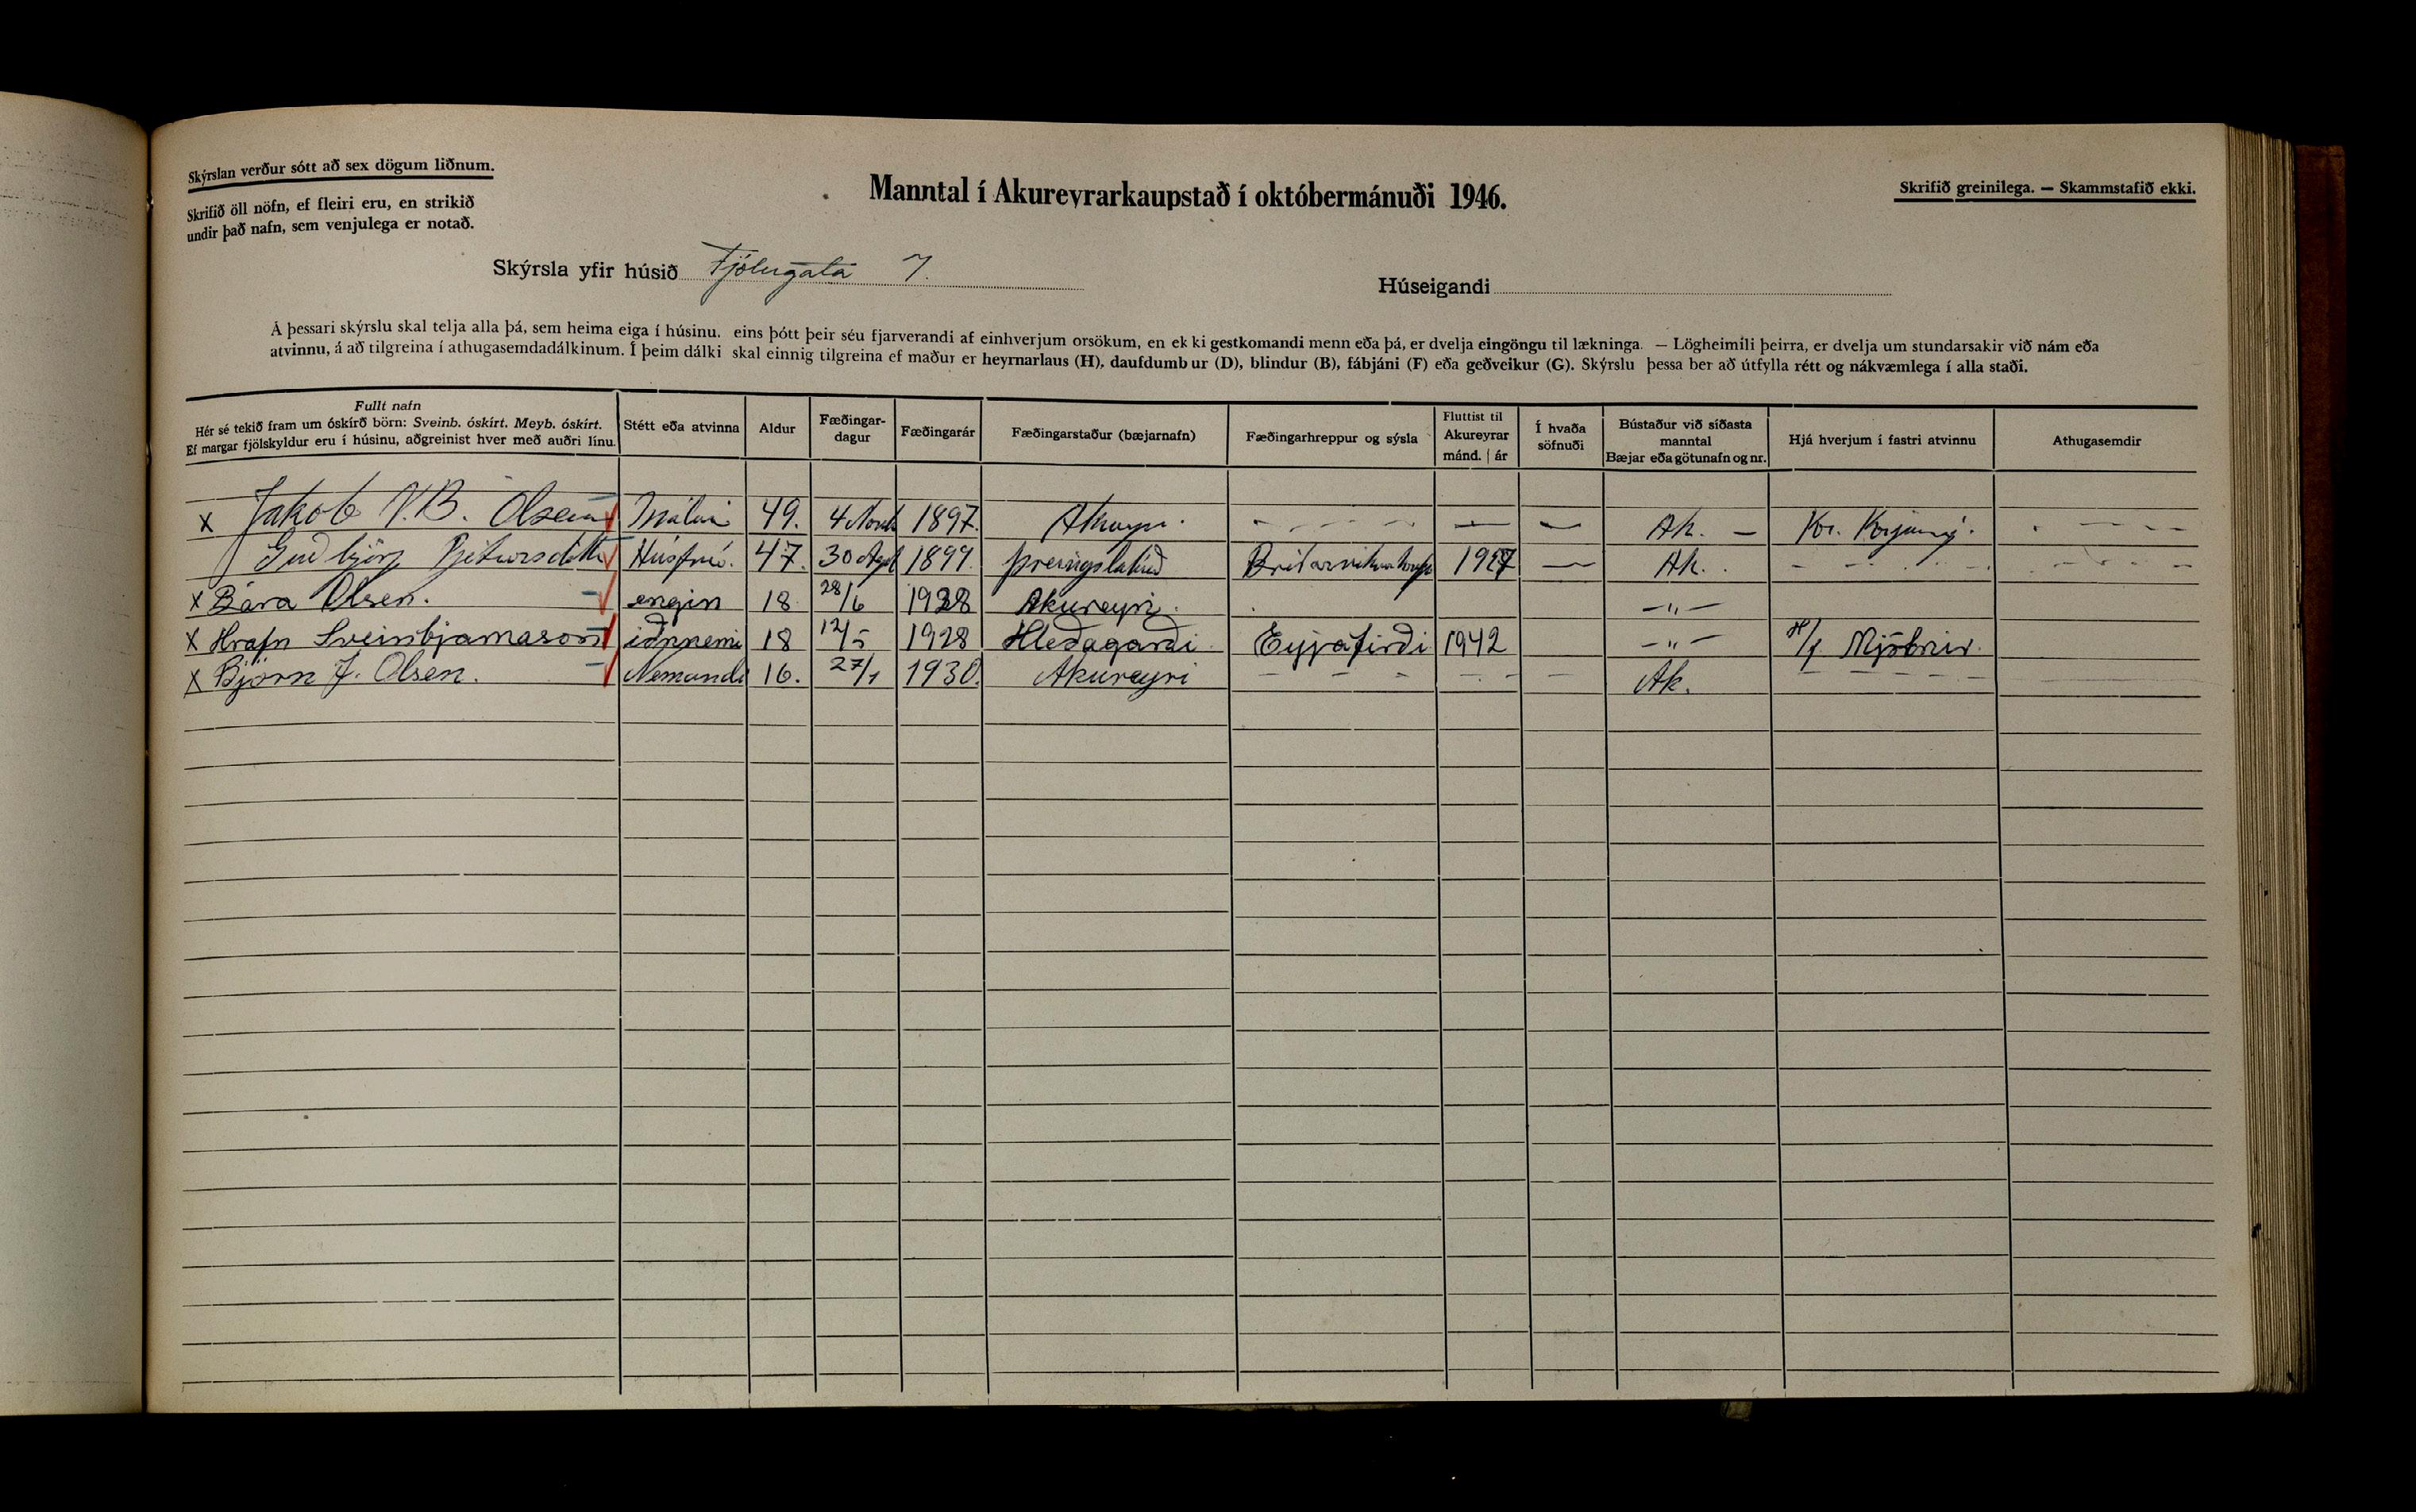 Skýrslan verður sótt að sex dögum liðnum.
Skrifið öll nöfn, ef fleiri eru, en strikið
undir það nafn, sem venjulega er notað.
Manntal í Akureyrarkaupstað í októbermánuði 1946.
Skrifið greinilega. — Skammstafið ekki.
Skýrsla yfir húsið Fjólugata 7.
Húseigandi
Á þessari skýrslu skal telja alla þá, sem heima eiga í húsinu. eins þótt þeir séu fjarverandi af einhverjum orsökum, en ek ki gestkomandi menn eða þá, er dvelja eingöngu til lækninga. — Lögheimili þeirra, er dvelja um stundarsakir við nám eða
atvinnu, á að tilgreina í athugasemdadálkinum. Í þeim dálki skal einnig tilgreina ef maður er heyrnarlaus (H), daufdumb ur (D), blindur (B), fábjáni (F) eða geðveikur (G). Skýrslu þessa ber að útfylla rétt og nákvæmlega í alla staði.
Fullt nafn
Hér sé tekið fram um óskírð börn: Sveinb. óskírt. Meyb. óskírt.
Ef margar fjölskyldur eru í húsinu, aðgreinist hver með auðri línu.
Stétt eða atvinna
Aldur
Fæðingar-
dagur
Fæðingarár
Fæðingarstaður (bæjarnafn)
Fæðingarhreppur og sýsla
Fluttist til
Akureyrar
mánd. | ár
Í hvaða
söfnuði
Bústaður við síðasta
manntal
Bæjar eða götunafn og nr.
Hjá hverjum í fastri atvinnu
Athugasemdir
x Jakob V.B. Olsen 49. 4 1897. — — Ak. —
Guðbjörg Pjetursdóttir Húsfrú. 47. 30 1899. 19 7 — Ak.
x Bára Olsen. engin 18 28/6 1928 Akureyri. —"—
x Hrafn Sveinbjarnason iðnnemi 18 12/5 1928 Hleðagarði Eyjafirði 1942 —"— H/f Mjölnir.
x Björn J. Olsen. Nemandi 16. 27/1 1930. Akureyri - - - - Ak. - - -